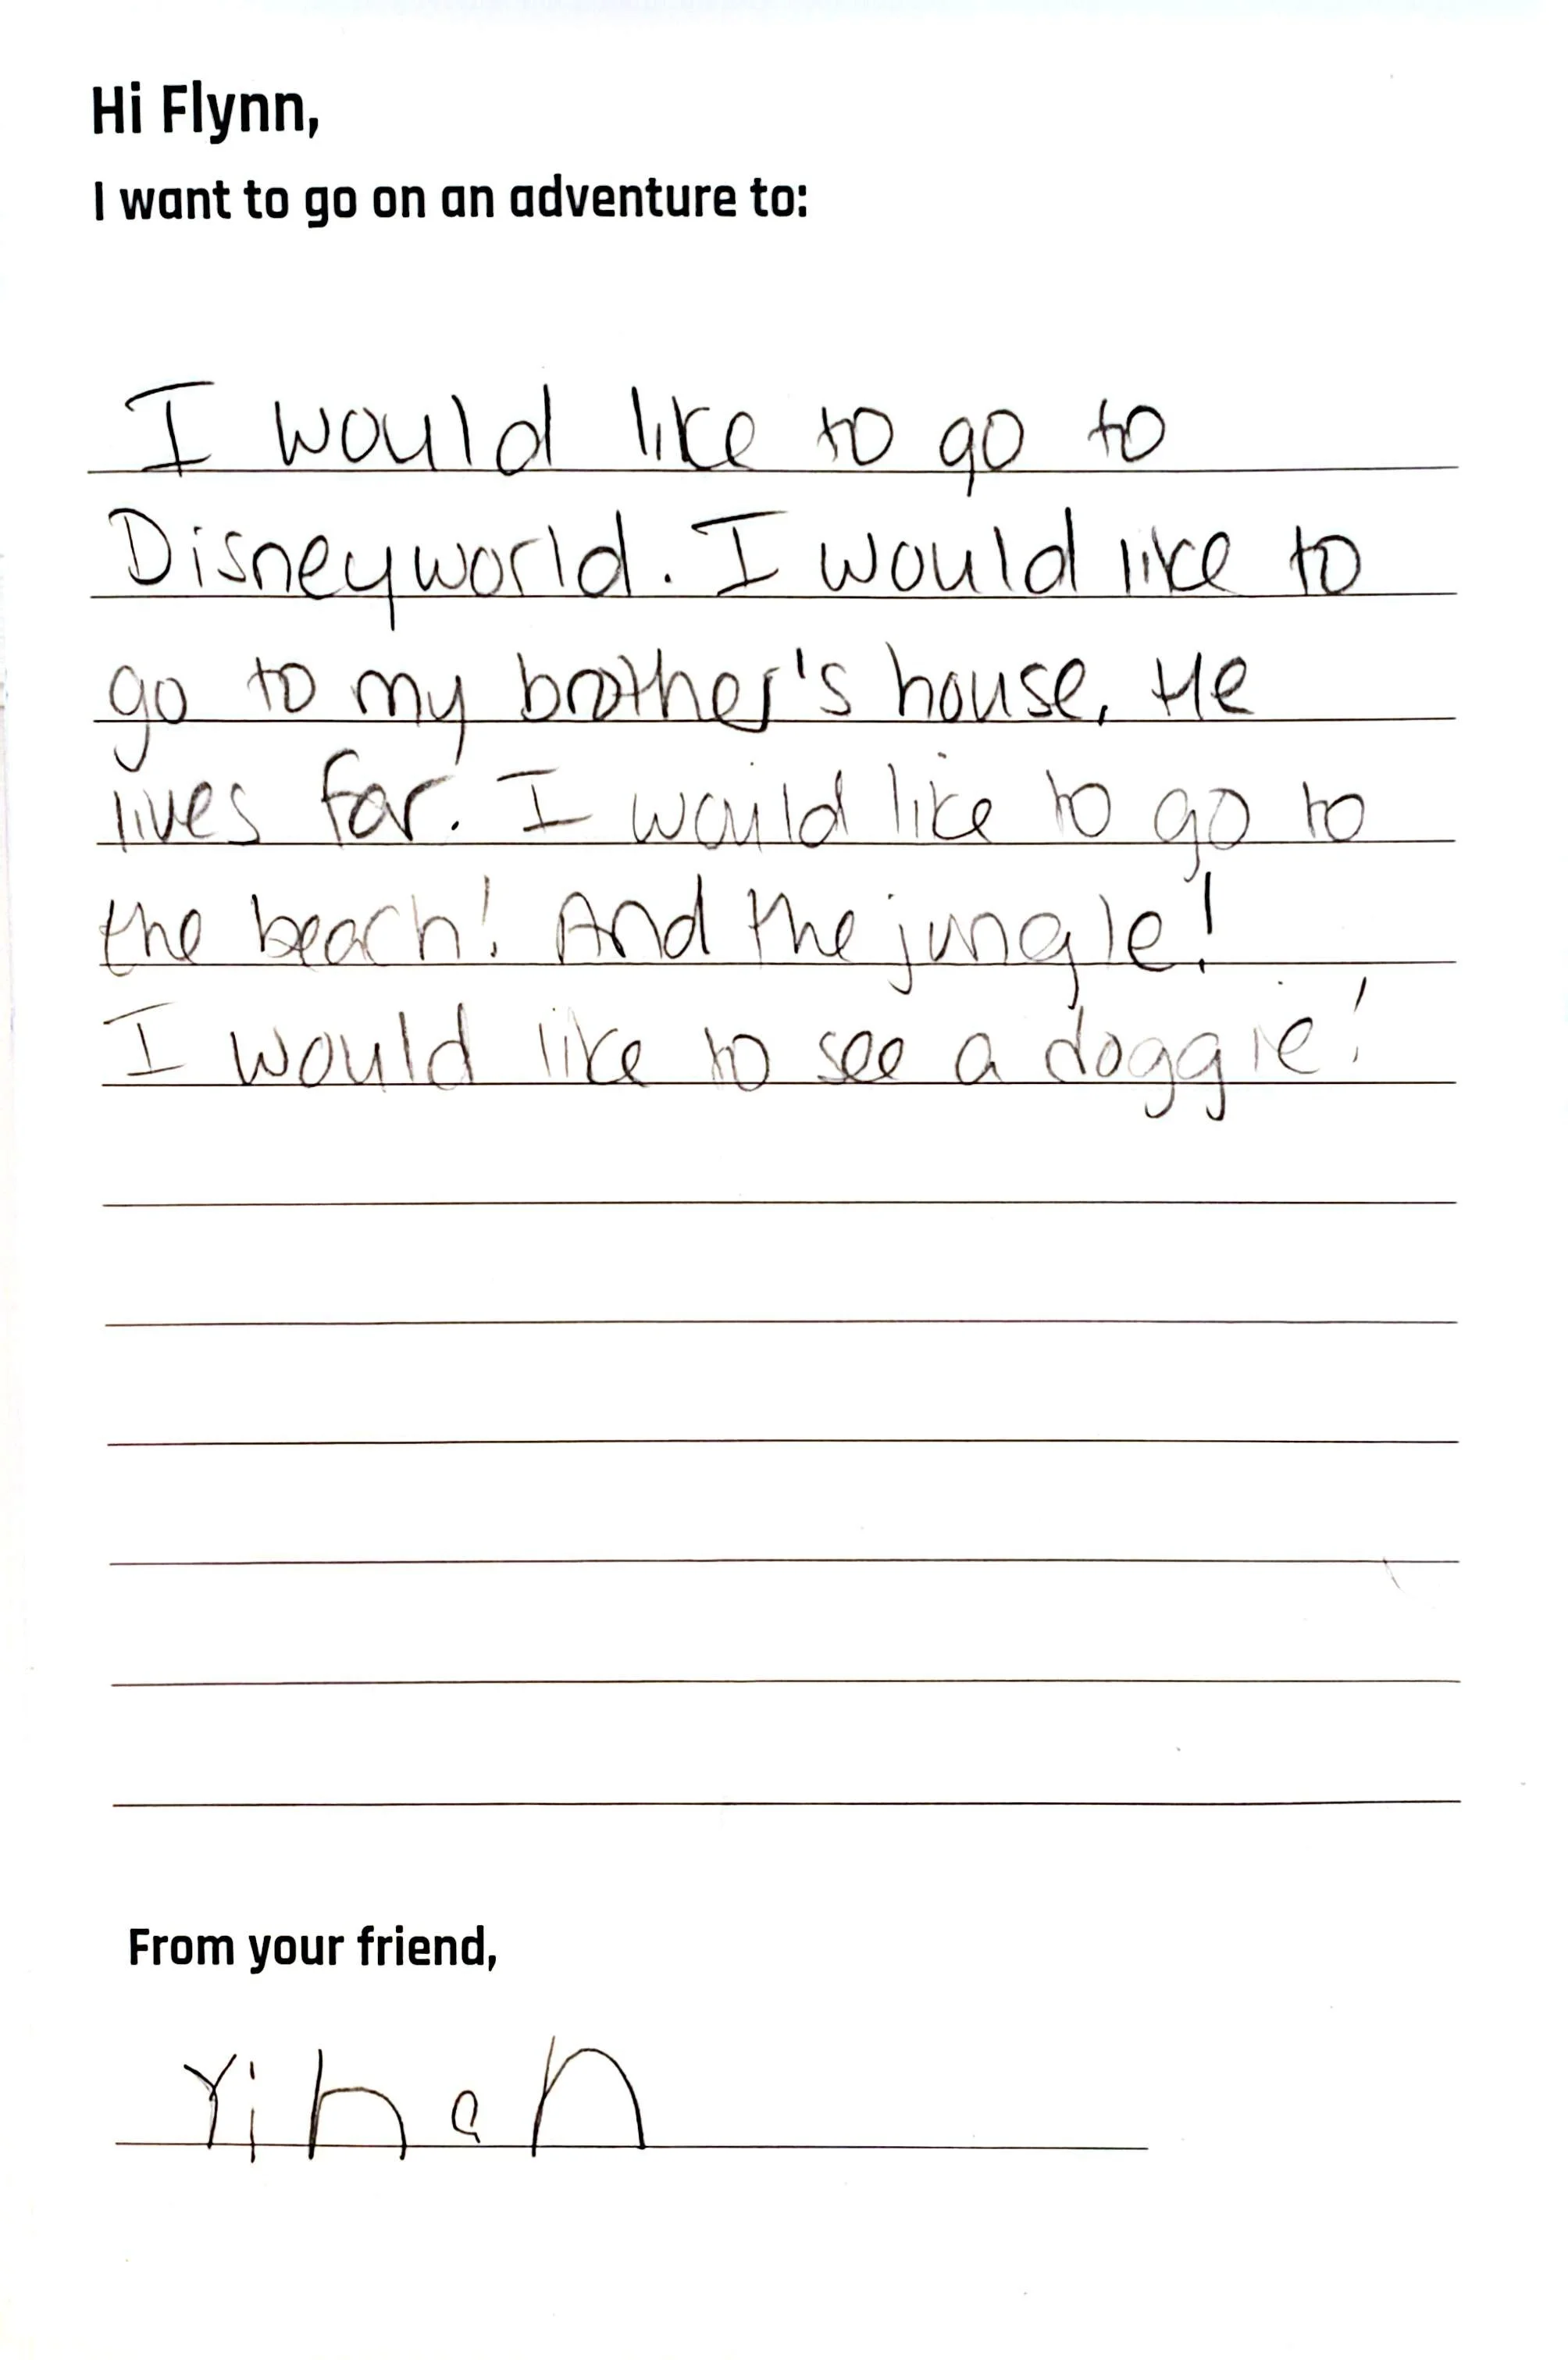 Hi Flynn,
I want to go on an adventure to:
I would like to go to
Disneyworld. I would like to
go to my brother's house. He
lives far. I would like to go to
the beach! And the jungle!
I would like to see a doggie!
From your friend,
Yihan